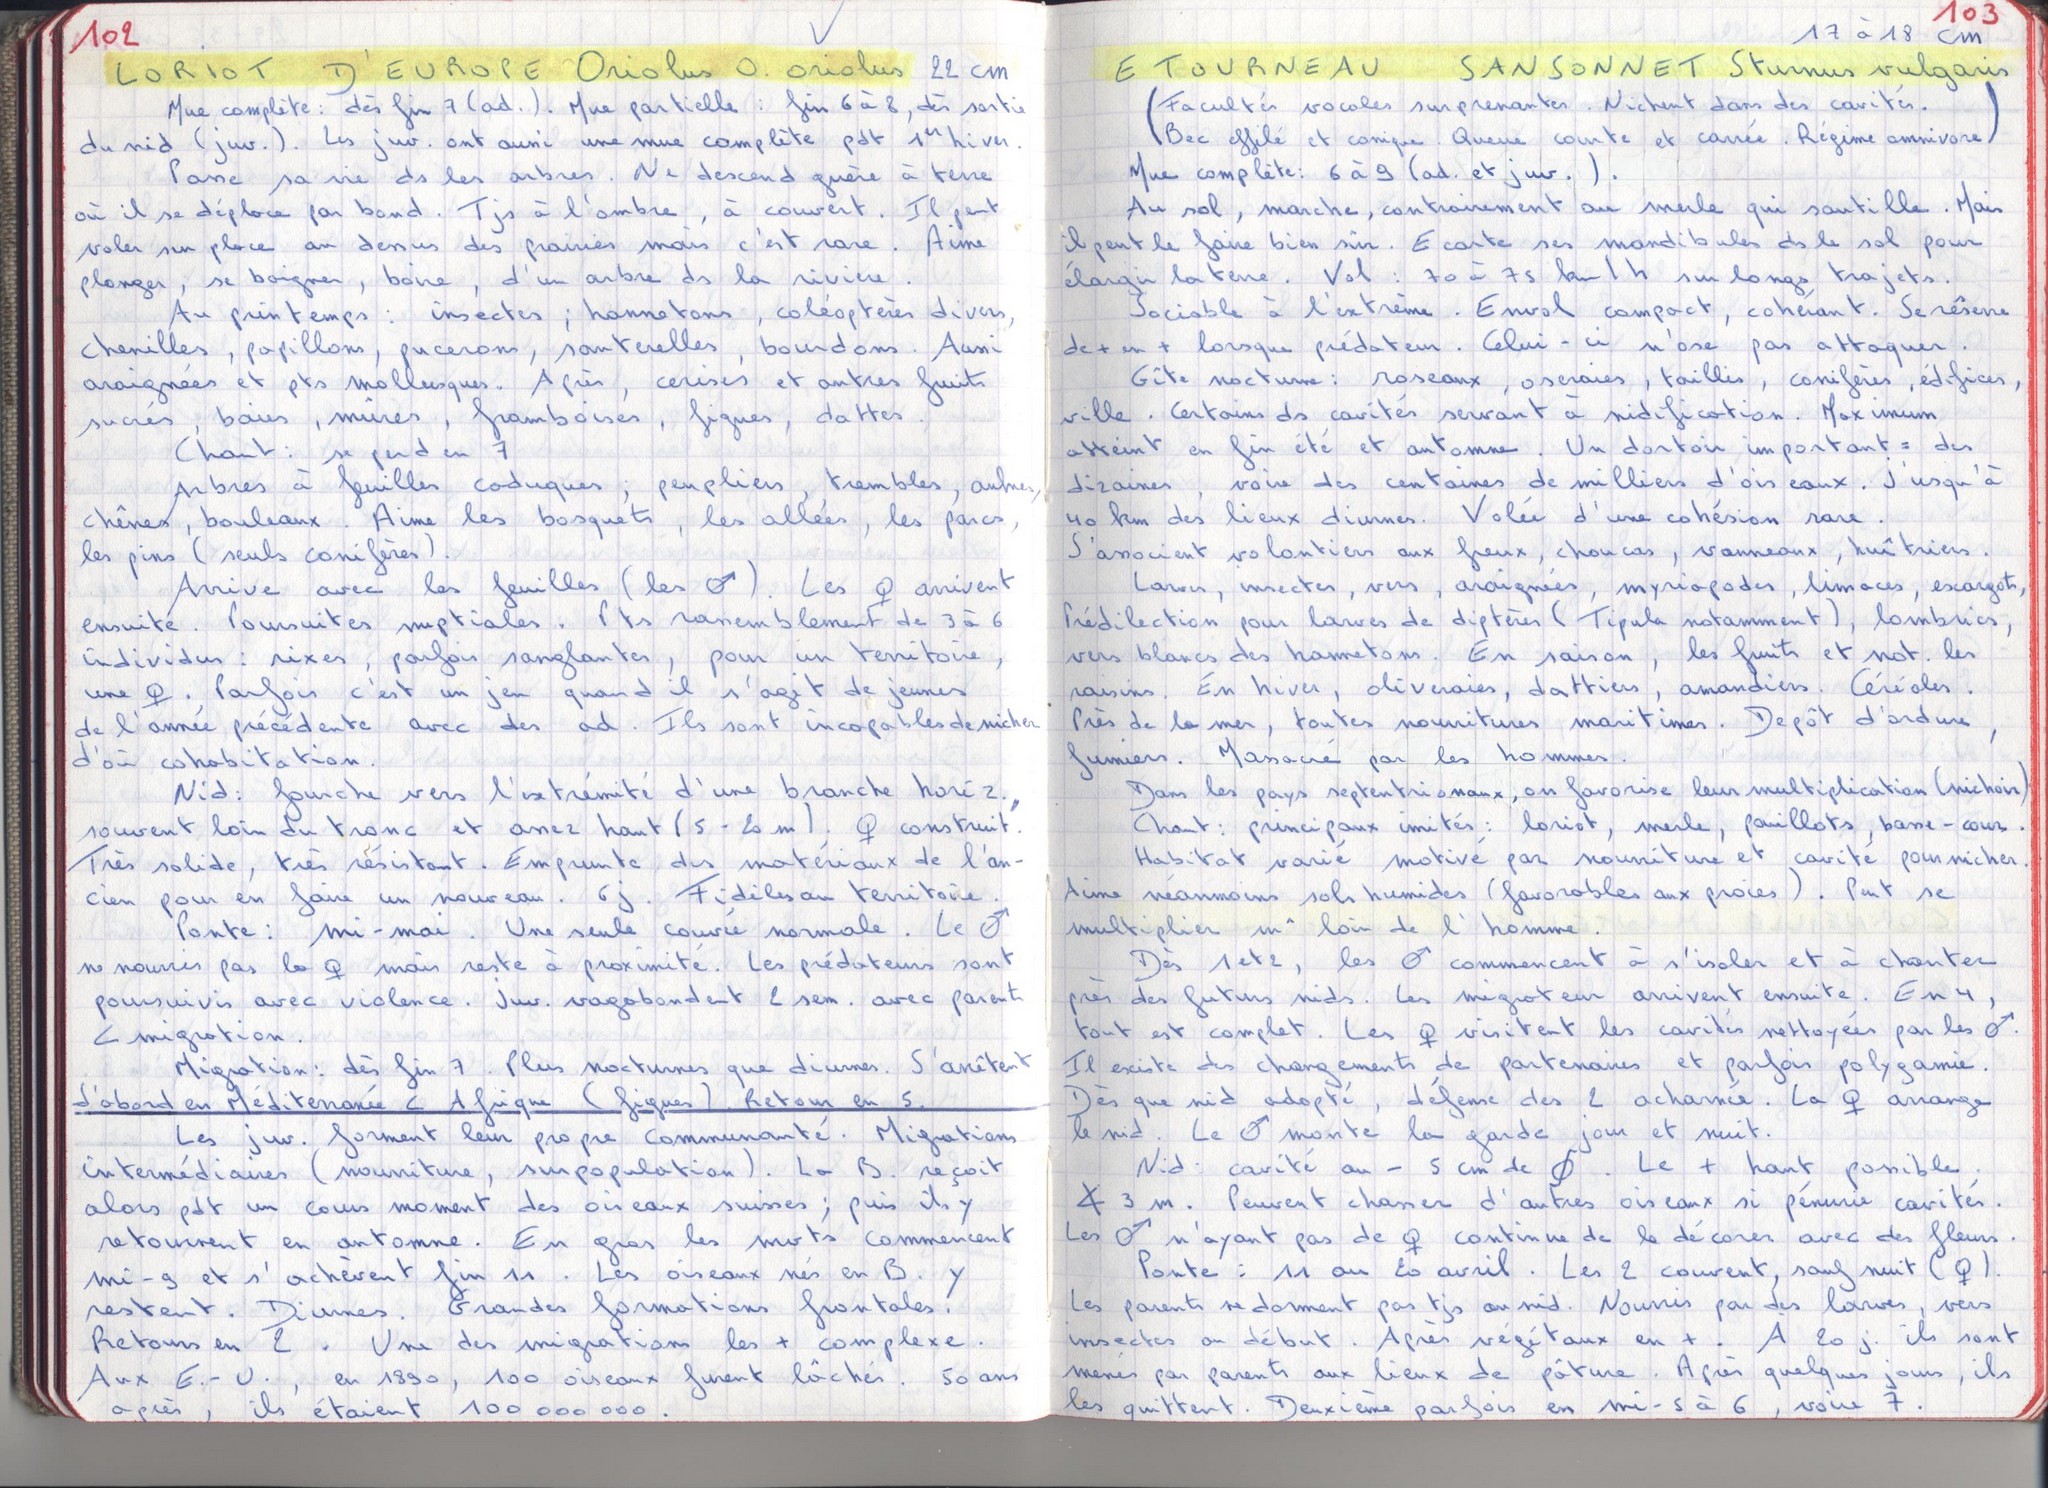 102
LORIOT D'EUROPE Oriolus O. oriolus 22 cm
Mue complète : dès fin 7 (ad.). Mue partielle : fin 6 à 8, dès sortie
du nid (juv.). Les juv. ont aussi une mue complète pdt 1er hiver.
Passe sa vie ds les arbres. Ne descend guère à terre
où il se déplace par bond. Tjs à l'ombre, à couvert. Il peut
voler sur place au dessus des prairies mais c'est rare. Aime
plonger, se baigner, boire, d'un arbre ds la rivière.
Au printemps : insectes ; hannetons, coléoptères divers,
chenilles, papillons, pucerons, sauterelles, bourdons. Aussi
araignées et pts mollusques. Après, cerises et autres fruits
sucrés, baies, mûres, framboises, figues, dattes.
Chant : se perd en 7
Arbres à feuilles caduques ; peupliers, trembles, aulnes,
chênes, bouleaux. Aime les bosquets, les allées, les parcs,
les pins (seuls conifères).
Arrive avec les feuilles (les ♂). Les ♀ arrivent
ensuite. Poursuites nuptiales. Pts rassemblement de 3 à 6
individus : rixes, parfois sanglantes, pour un territoire,
une ♀. Parfois c'est un jeu quand il s'agit de jeunes
de l'année précédente avec des ad. Ils sont incapables de nicher
d'où cohabitation.
Nid : fourche vers l'extrémité d'une branche horiz.,
souvent loin du tronc et assez haut (5 - 20 m). ♀ construit.
Très solide, très résistant. Emprunte des matériaux de l'an-
cien pour en faire un nouveau. 6j. Fidèles au territoire.
Ponte : mi-mai. Une seule couvée normale. Le ♂
ne nourris pas la ♀ mais reste à proximité. Les prédateurs sont
poursuivis avec violence. juv. vagabondent 2 sem. avec parents
< migration.
Migration : dès fin 7. Plus nocturnes que diurnes. S'arrêtent
d'abord en Méditerranée < Afrique (figues). Retour en 5.
Les juv. forment leur propre communauté. Migrations
intermédiaires (nourriture, surpopulation). La B. reçoit
alors pdt un cours moment des oiseaux suisses ; puis ils y
retournent en automne. En gros les mvts commencent
mi-9 et s'achèvent fin 11. Les oiseaux nés en B. y
restent. Diurnes. Grandes formations frontales.
Retours en 2. Une des migrations les + complexe.
Aux E.-U., en 1890, 100 oiseaux furent lâchés. 50 ans
après, ils étaient 100 000 000.
103
17 à 18 cm
ETOURNEAU SANSONNET Sturnus vulgaris
(Facultés vocales surprenantes. Nichent dans des cavités.
Bec effilé et conique. Queue courte et carrée. Régime omnivore)
Mue complète : 6 à 9 (ad. et juv.).
Au sol, marche, contrairement au merle qui sautille. Mais
il peut le faire bien sûr. Ecarte ses mandibules ds le sol pour
élargir la terre. Vol : 70 à 75 km/h sur longs trajets.
Sociable à l'extrême. Envol compact, cohérant. Se réserre
de + en + lorsque prédateur. Celui-ci n'ose pas attaquer.
Gîte nocturne : roseaux, oseraies, taillis, conifères, édifices,
ville. Certains ds cavités servant à nidification. Maximum
atteint en fin été et automne. Un dortoir important = des
dizaines, voire des centaines de milliers d'oiseaux. Jusqu'à
40 km des lieux diurnes. Volée d'une cohésion rare.
S'associent volontiers aux freux, choucas, vanneaux, huîtriers.
Larves, insectes, vers, araignées, myriapodes, limaces, escargots,
Prédilection pour larves de diptères (Tipula notamment), lombrics,
vers blancs des hannetons. En saison, les fruits et not. les
raisins. En hiver, oliveraies, dattiers, amandiers. Céréales.
Près de la mer, toutes nourritures maritimes. Depôt d'ordure,
fumiers. Massacré par les hommes.
Dans les pays septentrionaux, on favorise leur multiplication (nichoir)
Chant : principaux imités : loriot, merle, pouillots, basse-cour.
Habitat varié motivé par nourriture et cavité pour nicher.
Aime néanmoins sols humides (favorables aux proies). Peut se
multiplier m^ loin de l'homme.
Dès 1 et 2, les ♂ commencent à s'isoler et à chanter
près des futurs nids. Les migrateur arrivent ensuite. En 4,
tout est complet. Les ♀ visitent les cavités nettoyées par les ♂.
Il existe des changements de partenaires et parfois polygamie.
Dès que nid adopté, défense des 2 acharnée. La ♀ arrange
le nid. Le ♂ monte la garde jour et nuit.
Nid : cavité au - 5 cm de ∅. Le + haut possible.
∢ 3 m. Peuvent chasser d'autres oiseaux si pénurie cavités.
Les ♂ n'ayant pas de ♀ continue de le décorer avec des fleurs.
Ponte : 11 au 20 avril. Les 2 couvent, sauf nuit (♀).
Les parents ne dorment pas tjs au nid. Nourris par des larves, vers
insectes au début. Après végétaux en +. À 20 j. ils sont
menés par parents aux lieux de pâture. Après quelques jours, ils
les quittent. Deuxième parfois en mi-5 à 6, voire 7.